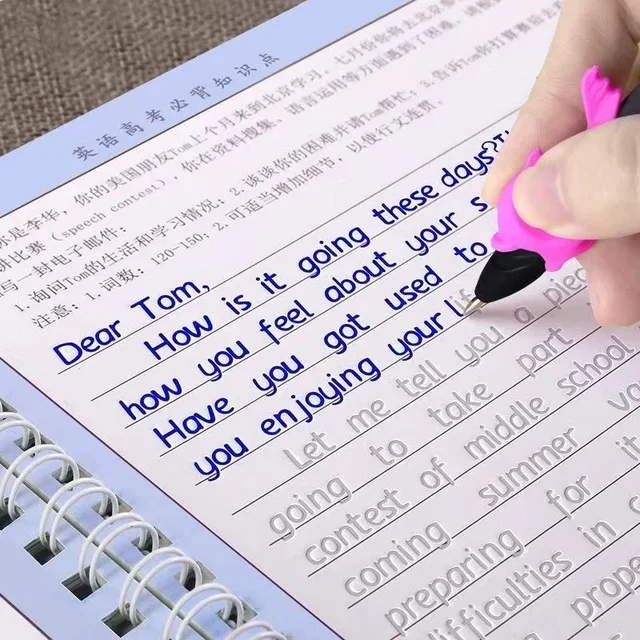 英语高考必背知识点
是李华，你的美国朋友Tom上个月来到北京学习，七月份你将
讲比赛 (speech contest)，你在资料搜集、语言运用等方面遇到了困难，请
写一封电子邮件：
1. 询问Tom的生活和学习情况；2. 谈谈你的困难并请Tom帮忙；3. 告诉Tom你打算赛后去
注意：1. 词数：120-150；2. 可适当增加细节，以使行文连贯。
Dear Tom,
How is it going these days?
how you feel about your s
Have you got used to
you enjoying your li
Let me tell you a piec
going to take part
contest of middle school
coming summer va
preparing for it
difficulties in
prope